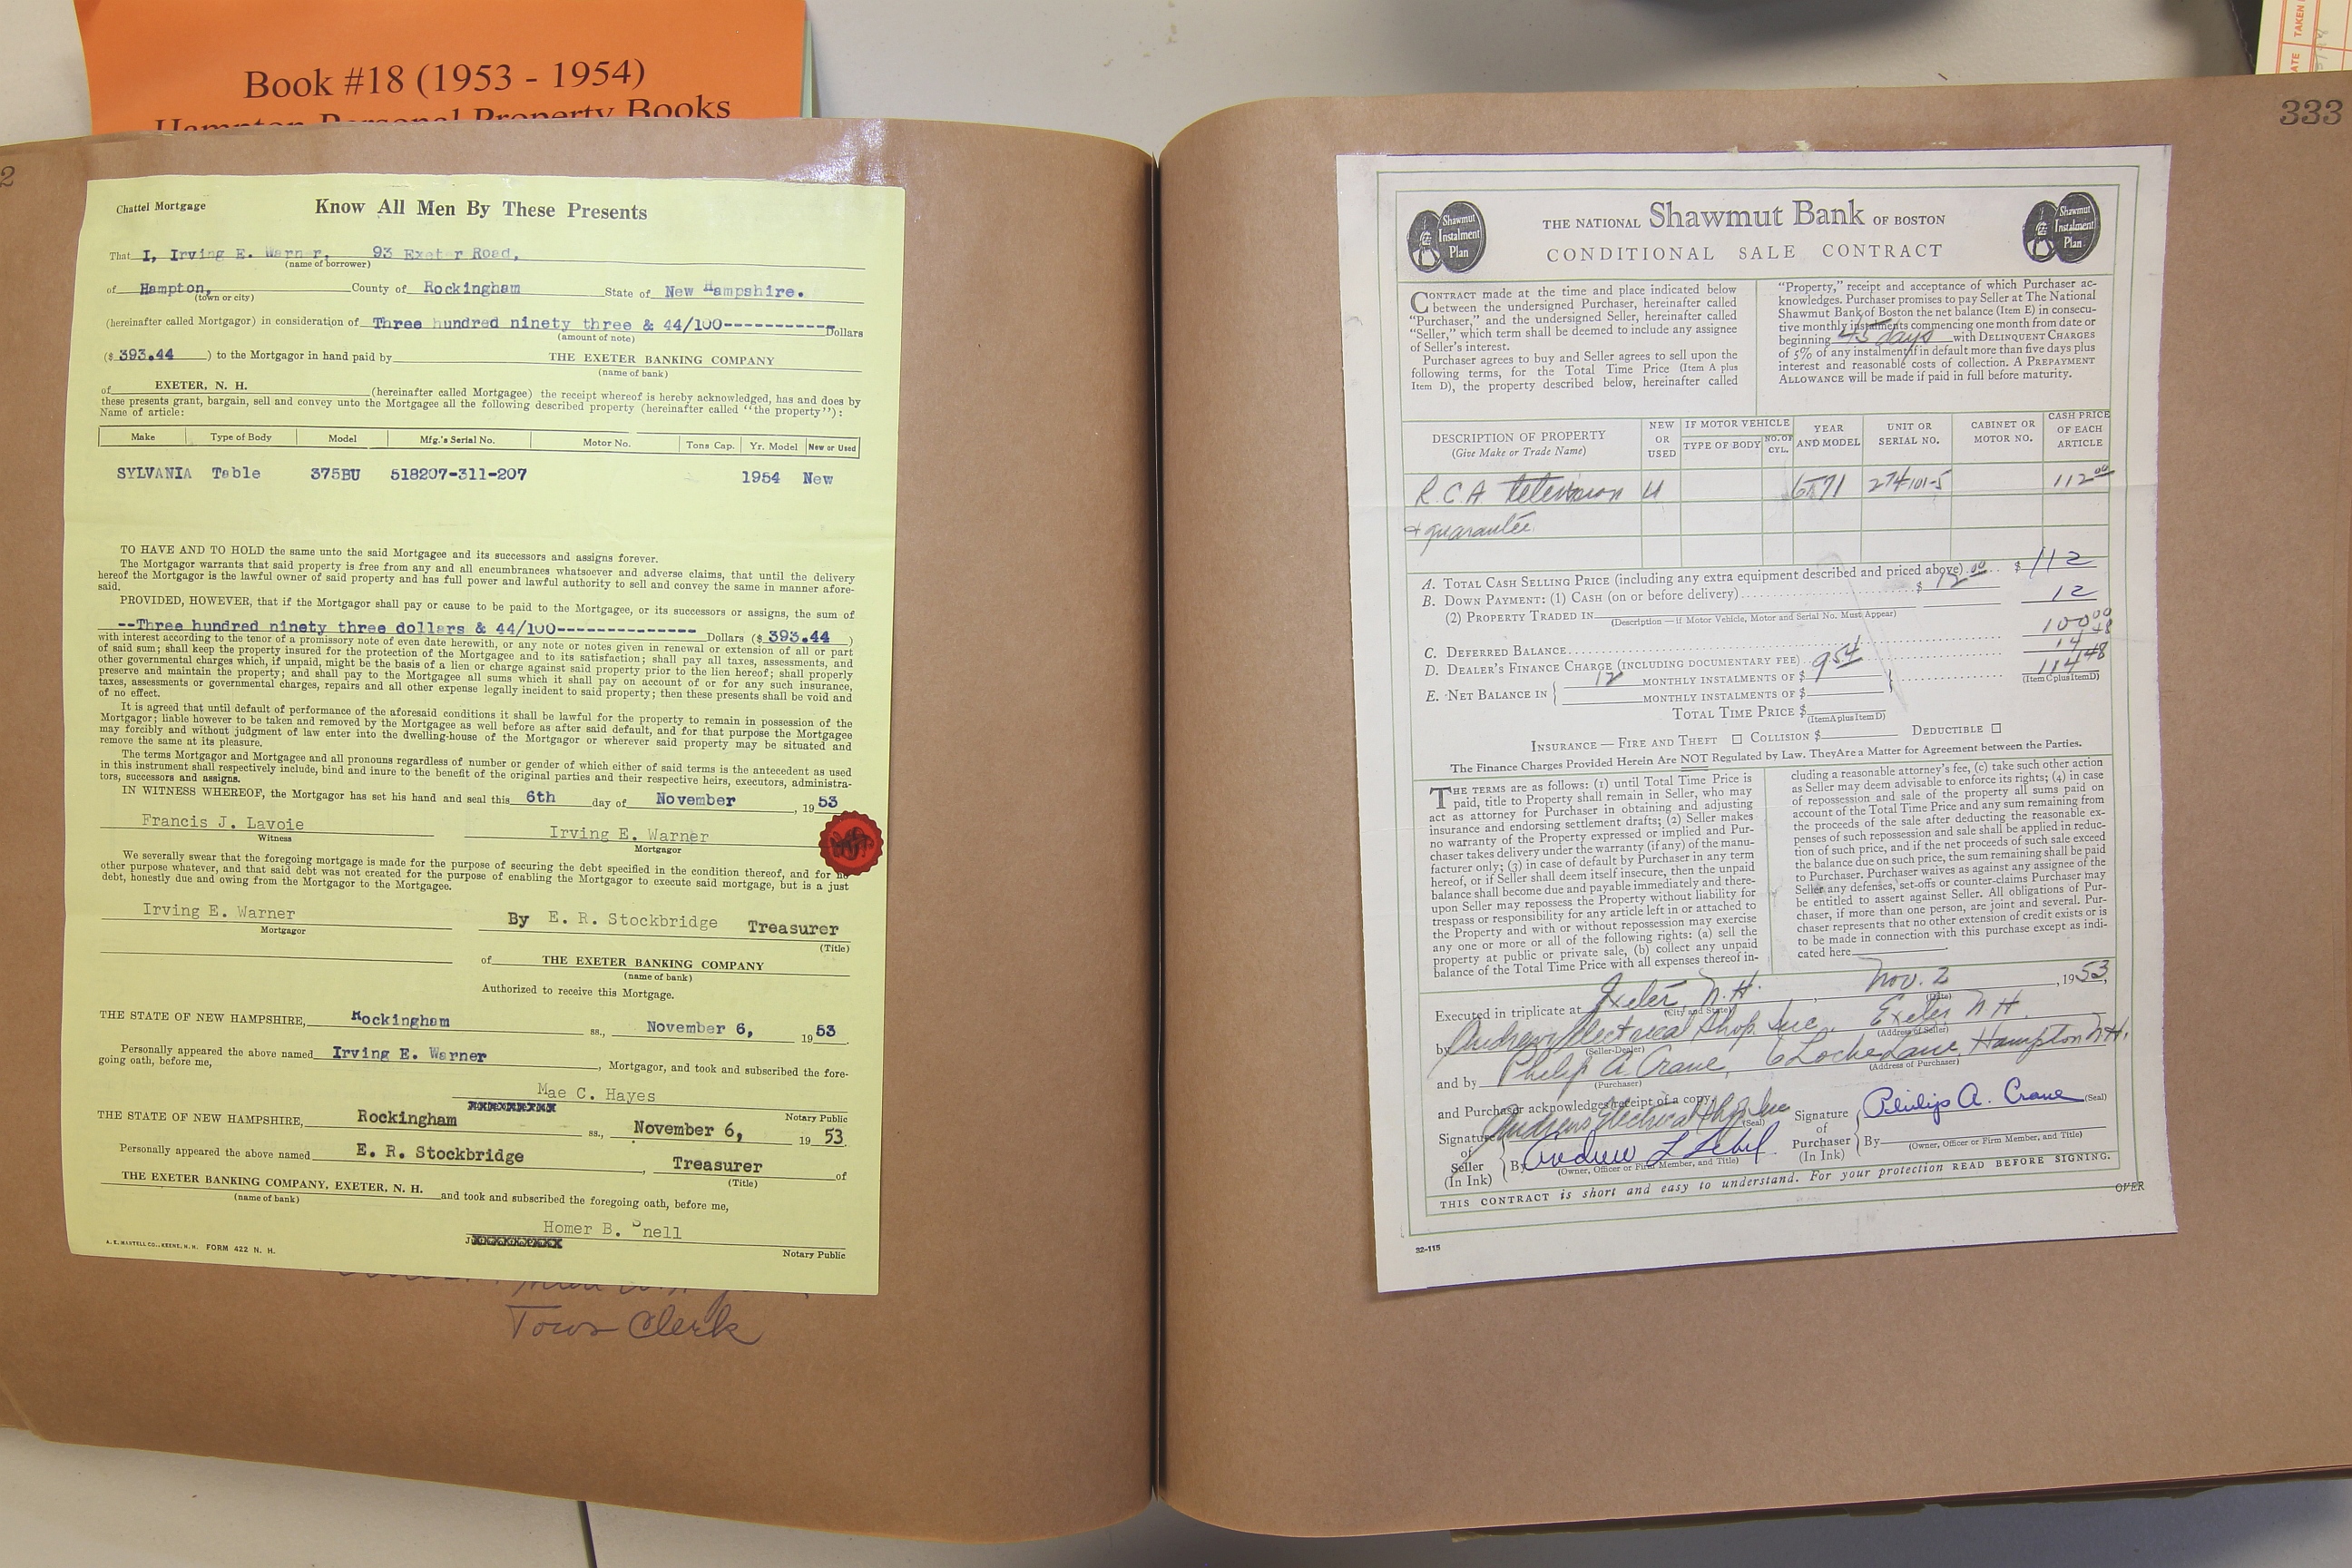 Book #18 (1953 - 1954)
Hampton Personal Property Books
2
Chattel Mortgage
Know All Men By These Presents
That I, Irving E. Warner, 93 Exeter Road,
(name of borrower)
of Hampton, County of Rockingham State of New Hampshire.
(town or city)
(hereinafter called Mortgagor) in consideration of Three hundred ninety three & 44/100----------- Dollars
(amount of note)
($ 393.44 ) to the Mortgagor in hand paid by THE EXETER BANKING COMPANY
(name of bank)
of EXETER, N. H. (hereinafter called Mortgagee) the receipt whereof is hereby acknowledged, has and does by
these presents grant, bargain, sell and convey unto the Mortgagee all the following described property (hereinafter called "the property"):
Name of article:
Make Type of Body Model Mfg.'s Serial No. Motor No. Tons Cap. Yr. Model New or Used
SYLVANIA Table 375BU 518207-311-207 1954 New
TO HAVE AND TO HOLD the same unto the said Mortgagee and its successors and assigns forever.
The Mortgagor warrants that said property is free from any and all encumbrances whatsoever and adverse claims, that until the delivery
hereof the Mortgagor is the lawful owner of said property and has full power and lawful authority to sell and convey the same in manner afore-
said.
PROVIDED, HOWEVER, that if the Mortgagor shall pay or cause to be paid to the Mortgagee, or its successors or assigns, the sum of
--Three hundred ninety three dollars & 44/100-------------- Dollars ($ 393.44 )
with interest according to the tenor of a promissory note of even date herewith, or any note or notes given in renewal or extension of all or part
of said sum; shall keep the property insured for the protection of the Mortgagee and to its satisfaction; shall pay all taxes, assessments, and
other governmental charges which, if unpaid, might be the basis of a lien or charge against said property prior to the lien hereof; shall properly
preserve and maintain the property; and shall pay to the Mortgagee all sums which it shall pay on account of or for any such insurance,
taxes, assessments or governmental charges, repairs and all other expense legally incident to said property; then these presents shall be void and
of no effect.
It is agreed that until default of performance of the aforesaid conditions it shall be lawful for the property to remain in possession of the
Mortgagor; liable however to be taken and removed by the Mortgagee as well before as after said default, and for that purpose the Mortgagee
may forcibly and without judgment of law enter into the dwelling-house of the Mortgagor or wherever said property may be situated and
remove the same at its pleasure.
The terms Mortgagor and Mortgagee and all pronouns regardless of number or gender of which either of said terms is the antecedent as used
in this instrument shall respectively include, bind and inure to the benefit of the original parties and their respective heirs, executors, administra-
tors, successors and assigns.
IN WITNESS WHEREOF, the Mortgagor has set his hand and seal this 6th day of November, 19 53
Francis J. Lavoie Irving E. Warner
Witness Mortgagor
We severally swear that the foregoing mortgage is made for the purpose of securing the debt specified in the condition thereof, and for no
other purpose whatever, and that said debt was not created for the purpose of enabling the Mortgagor to execute said mortgage, but is a just
debt, honestly due and owing from the Mortgagor to the Mortgagee.
Irving E. Warner By E. R. Stockbridge Treasurer
Mortgagor (Title)
of THE EXETER BANKING COMPANY
(name of bank)
Authorized to receive this Mortgage.
THE STATE OF NEW HAMPSHIRE, Rockingham ss., November 6, 19 53
Personally appeared the above named Irving E. Warner, Mortgagor, and took and subscribed the fore-
going oath, before me,
Mae C. Hayes
Notary Public
THE STATE OF NEW HAMPSHIRE, Rockingham ss., November 6, 19 53.
Personally appeared the above named E. R. Stockbridge, Treasurer of
(Title)
THE EXETER BANKING COMPANY, EXETER, N. H. and took and subscribed the foregoing oath, before me,
(name of bank)
Homer B. Snell
Notary Public
A. E. MARTELL CO., KEENE, N. H. FORM 422 N. H.
Town Clerk
333
Shawmut Instalment Plan
THE NATIONAL Shawmut Bank OF BOSTON
CONDITIONAL SALE CONTRACT
Shawmut Instalment Plan
CONTRACT made at the time and place indicated below
between the undersigned Purchaser, hereinafter called
"Purchaser," and the undersigned Seller, hereinafter called
"Seller," which term shall be deemed to include any assignee
of Seller's interest.
Purchaser agrees to buy and Seller agrees to sell upon the
following terms, for the Total Time Price (Item A plus
Item D), the property described below, hereinafter called
"Property," receipt and acceptance of which Purchaser ac-
knowledges. Purchaser promises to pay Seller at The National
Shawmut Bank of Boston the net balance (Item E) in consecu-
tive monthly instalments commencing one month from date or
beginning 45 days with DELINQUENT CHARGES
of 5% of any instalment if in default more than five days plus
interest and reasonable costs of collection. A PREPAYMENT
ALLOWANCE will be made if paid in full before maturity.
DESCRIPTION OF PROPERTY (Give Make or Trade Name) NEW OR USED IF MOTOR VEHICLE TYPE OF BODY NO. OF CYL. YEAR AND MODEL UNIT OR SERIAL NO. CABINET OR MOTOR NO. CASH PRICE OF EACH ARTICLE
R.C.A television U 6T71 274101-5 112 00
+ guarantee
A. TOTAL CASH SELLING PRICE (including any extra equipment described and priced above) ... $ 112
B. DOWN PAYMENT: (1) CASH (on or before delivery) ... $ 12.00
(2) PROPERTY TRADED IN 12
(Description — if Motor Vehicle, Motor and Serial No. Must Appear)
C. DEFERRED BALANCE ... 100 00
D. DEALER'S FINANCE CHARGE (INCLUDING DOCUMENTARY FEE) ... 14 48
E. NET BALANCE IN { 12 MONTHLY INSTALMENTS OF $ 9.54 } ... 114 48
MONTHLY INSTALMENTS OF $ (Item C plus Item D)
TOTAL TIME PRICE $
(Item A plus Item D)
INSURANCE — FIRE AND THEFT ☐ COLLISION $ DEDUCTIBLE ☐
The Finance Charges Provided Herein Are NOT Regulated by Law. They Are a Matter for Agreement between the Parties.
THE TERMS are as follows: (1) until Total Time Price is
paid, title to Property shall remain in Seller, who may
act as attorney for Purchaser in obtaining and adjusting
insurance and endorsing settlement drafts; (2) Seller makes
no warranty of the Property expressed or implied and Pur-
chaser takes delivery under the warranty (if any) of the manu-
facturer only; (3) in case of default by Purchaser in any term
hereof, or if Seller shall deem itself insecure, then the unpaid
balance shall become due and payable immediately and there-
upon Seller may repossess the Property without liability for
trespass or responsibility for any article left in or attached to
the Property and with or without repossession may exercise
any one or more or all of the following rights: (a) sell the
property at public or private sale, (b) collect any unpaid
balance of the Total Time Price with all expenses thereof in-
cluding a reasonable attorney's fee, (c) take such other action
as Seller may deem advisable to enforce its rights; (4) in case
of repossession and sale of the property all sums paid on
account of the Total Time Price and any sum remaining from
the proceeds of the sale after deducting the reasonable ex-
penses of such repossession and sale shall be applied in reduc-
tion of such price, and if the net proceeds of such sale exceed
the balance due on such price, the sum remaining shall be paid
to Purchaser. Purchaser waives as against any assignee of the
Seller any defenses, set-offs or counter-claims Purchaser may
be entitled to assert against Seller. All obligations of Pur-
chaser, if more than one person, are joint and several. Pur-
chaser represents that no other extension of credit exists or is
to be made in connection with this purchase except as indi-
cated here
Executed in triplicate at Exeter, N.H., Nov. 2, 19 53,
(City and State) (Date)
by Andrews Electrical Shop Inc. Exeter N H.
(Seller-Dealer) (Address of Seller)
and by Philip A. Crane, 6 Locke Lane Hampton N.H.
(Purchaser) (Address of Purchaser)
and Purchaser acknowledges receipt of a copy
Signature of Seller (In Ink) Andrews Electrical Shop Inc (Seal)
By Andrew L
(Owner, Officer or Firm Member, and Title)
Signature of Purchaser (In Ink) Philip A. Crane (Seal)
By
(Owner, Officer or Firm Member, and Title)
THIS CONTRACT is short and easy to understand. For your protection READ BEFORE SIGNING.
OVER
32-115
TAKEN